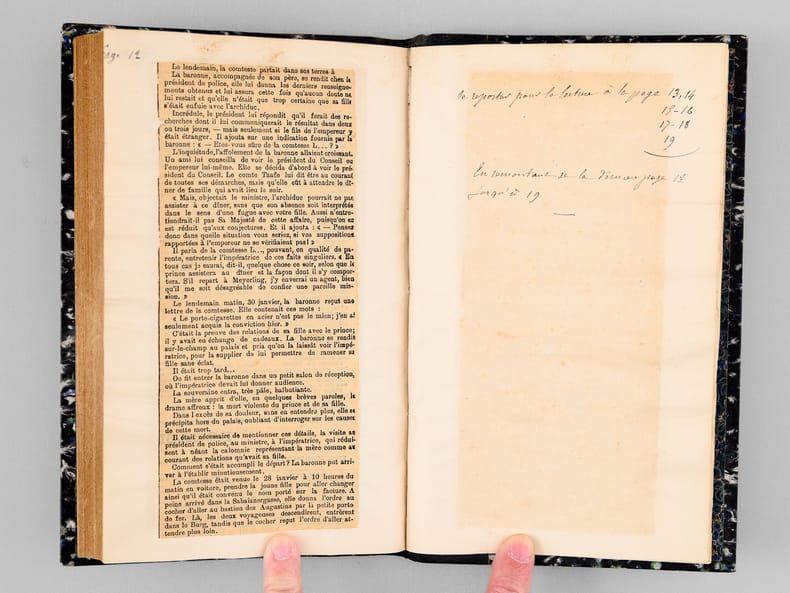 Page 12
Le lendemain, la comtesse partait dans ses terres à
La baronne, accompagnée de son père, se rendit chez le
président de police, elle lui donna les derniers renseigne-
ments obtenus et lui assura cette fois qu'aucun doute ne
lui restait et qu'elle n'était que trop certaine que sa fille
s'était enfuie avec l'archiduc.
Incrédule, le président lui répondit qu'il ferait des re-
cherches dont il lui communiquerait le résultat dans deux
ou trois jours, — mais seulement si le fils de l'empereur y
était étranger. Il ajouta sur une indication fournie par la
baronne : « — Etes-vous sûre de la comtesse L... ? »
L'inquiétude, l'affolement de la baronne allaient croissant.
Un ami lui conseilla de voir le président du Conseil ou
l'empereur lui-même. Elle se décida d'abord à voir le pré-
sident du Conseil. Le comte Taafe lui dit être au courant
de toutes ses démarches, mais qu'elle eût à attendre le dî-
ner de famille qui avait lieu le soir.
« Mais, objectait le ministre, l'archiduc pourrait ne pas
assister à ce dîner, sans que son absence soit interprétée
dans le sens d'une fugue avec votre fille. Aussi n'entre-
tiendrait-il pas Sa Majesté de cette affaire, puisqu'on en
est réduit qu'aux conjectures. Et il ajouta : « — Pensez
donc dans quelle situation vous seriez, si vos suppositions
rapportées à l'empereur ne se vérifiaient pas ! »
Il parla de la comtesse L..., pouvant, en qualité de pa-
rente, entretenir l'impératrice de ces faits singuliers. « En
tous cas je saurai, dit-il, quelque chose ce soir, selon que le
prince assistera au dîner et la façon dont il s'y compor-
tera. S'il repart à Meyerling, j'y enverrai un agent, bien
qu'il me soit désagréable de confier une pareille mis-
sion. »
Le lendemain matin, 30 janvier, la baronne reçut une
lettre de la comtesse. Elle contenait ces mots :
« Le porte-cigarettes en acier n'est pas le mien; j'en ai
seulement acquis la conviction hier. »
C'était la preuve des relations de sa fille avec le prince;
il y avait eu échange de cadeaux. La baronne se rendit
sur-le-champ au palais et pria qu'on la laissât voir l'impé-
ratrice, pour la supplier de lui permettre de ramener sa
fille sans éclat.
Il était trop tard...
On fit entrer la baronne dans un petit salon de réception,
où l'impératrice devait lui donner audience.
La souveraine entra, très pâle, balbutiante.
La mère apprit d'elle, en quelques brèves paroles, le
drame affreux : la mort violente du prince et de sa fille.
Dans l'excès de sa douleur, sans en entendre plus, elle se
précipita hors du palais, oubliant d'interroger sur les causes
de cette mort.
Il était nécessaire de mentionner ces détails, la visite au
président de police, au ministre, à l'impératrice, qui rédui-
sent à néant la calomnie représentant la mère comme au
courant des relations qu'avait sa fille.
Comment s'était accompli le départ? La baronne put arri-
ver à l'établir minutieusement.
La comtesse était venue le 28 janvier à 10 heures du
matin en voiture, prendre la jeune fille pour aller changer
ainsi qu'il était convenu le nom porté sur la facture. A
peine arrivé dans la Sabainergasse, elle donna l'ordre au
cocher d'aller au bastion des Augustins par la petite porte
de fer. Là, les deux voyageuses descendirent, entrèrent
dans le Burg, tandis que le cocher reçut l'ordre d'aller at-
tendre plus loin.
Se reporter pour la lecture à la page 13, 14
15-16
17-18
19
En remontant de la dernière page 15
jusqu'à 19